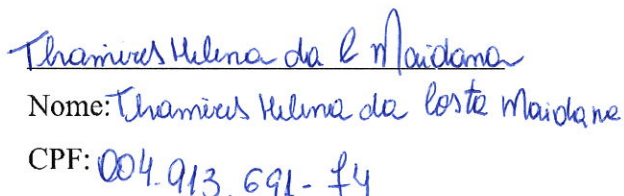 Thamires Helena da C Maidana
Nome: Thamires Helena da Costa Maidana
CPF: 004.913.691-74